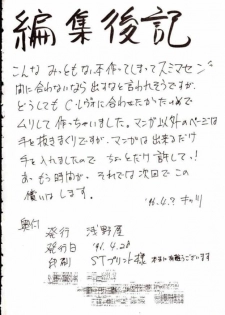 編集後記
こんな みっともない本作ってしまってスミマセン
間に合わないなら 出すなと言われそうですが、
どうしても C・レヴォに合わせたかったので
ムリして作っちゃいました。マンガ以外のページは
手を抜きまくりですが、マンガは出来るだけ
手を入れましたので ちょっとだけ許して!
おもう時間が、それでは次回でこの
償いはします。
'96.4.?
奥付
発行 浅野屋
発行日 '96.4.28
印刷 STプリント様 本当に有難うございます